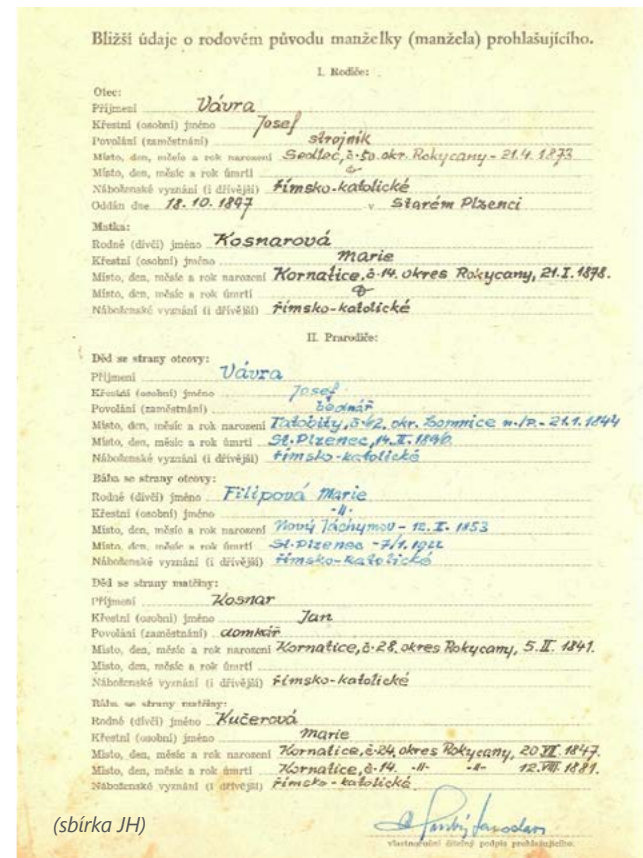 Bližší údaje o rodovém původu manželky (manžela) prohlašujícího.
I. Rodiče:
Otec:
Příjmení Vávra
Křestní (osobní) jméno Josef
Povolání (zaměstnání) strojník
Místo, den, měsíc a rok narození Sedlec, č. 50. okr. Rokycany - 21.4.1873
Místo, den, měsíc a rok úmrtí
Náboženské vyznání (i dřívější) římsko-katolické
Oddán dne 18.10.1897 v Starém Plzenci
Matka:
Rodné (dívčí) jméno Kosnarová
Křestní (osobní) jméno Marie
Místo, den, měsíc a rok narození Kornatice, č. 14. okres Rokycany, 21.I.1878.
Místo, den, měsíc a rok úmrtí
Náboženské vyznání (i dřívější) římsko-katolické
II. Prarodiče:
Děd se strany otcovy:
Příjmení Vávra
Křestní (osobní) jméno Josef
Povolání (zaměstnání) bednář
Místo, den, měsíc a rok narození Tatobity, č. 42. okr. Lomnice n./P. - 21.1.1844
Místo, den, měsíc a rok úmrtí St. Plzenec, 14.II.
Náboženské vyznání (i dřívější) římsko-katolické
Bába se strany otcovy:
Rodné (dívčí) jméno Filipová Marie
Křestní (osobní) jméno -"-
Místo, den, měsíc a rok narození Nový Jáchymov - 12. 1853
Místo, den, měsíc a rok úmrtí St. Plzenec - 7/1. 1922
Náboženské vyznání (i dřívější) římsko-katolické
Děd se strany matčiny:
Příjmení Kosnar
Křestní (osobní) jméno Jan
Povolání (zaměstnání) domkář
Místo, den, měsíc a rok narození Kornatice, č. 28. okres Rokycany, 5.II.1841.
Místo, den, měsíc a rok úmrtí
Náboženské vyznání (i dřívější) římsko-katolické
Bába se strany matčiny:
Rodné (dívčí) jméno Kučerová
Křestní (osobní) jméno Marie
Místo, den, měsíc a rok narození Kornatice, č. 24. okres Rokycany, 20.VII.1847.
Místo, den, měsíc a rok úmrtí Kornatice, č. 14. -"- -"- 12.VIII.1881.
Náboženské vyznání (i dřívější) římsko-katolické
(sbírka JH)
Jaroslav
vlastnoruční čitelný podpis prohlašujícího.